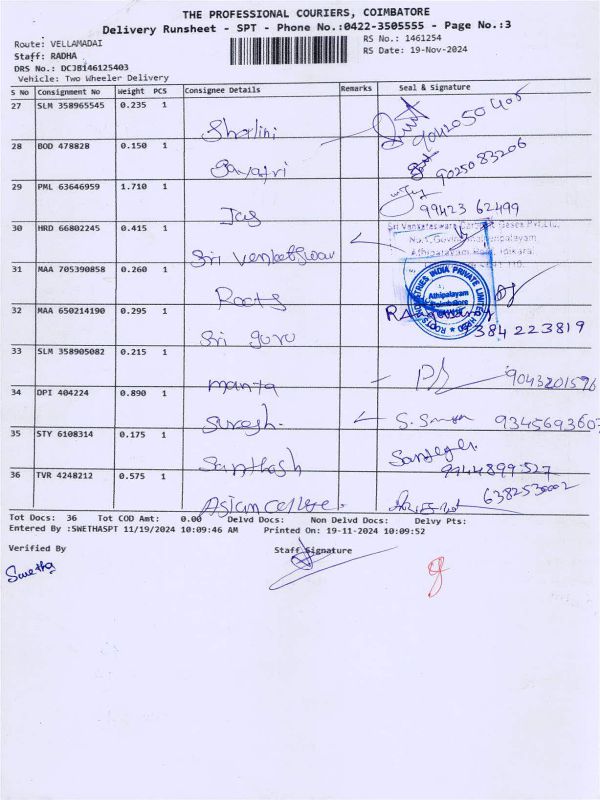 THE PROFESSIONAL COURIERS, COIMBATORE
Delivery Runsheet - SPT - Phone No.:0422-3505555 - Page No.:3
Route: VELLAMADAI
RS No.: 1461254
Staff: RADHA
RS Date: 19-Nov-2024
DRS No.: DCJB146125403
Vehicle: Two Wheeler Delivery
S No Consignment No Weight PCS Consignee Details Remarks Seal & Signature
27 SLM 358965545 0.235 1
Shalini 9042050405
28 BOD 478828 0.150 1
Gayatri 9025083206
29 PML 63646959 1.710 1
Jay 99423 62499
30 HRD 66802245 0.415 1
Sri Venketswar
Sri Venkateswara Gases Pvt.Ltd.
31 MAA 705390858 0.260 1
Roots
ROOTS INDUSTRIES INDIA PRIVATE LIMITED
Athipalayam
Coimbatore
32 MAA 650214190 0.295 1
Sri guru 384 223819
33 SLM 358905082 0.215 1
mamta 9043201596
34 DPI 404224 0.890 1
Suresh. 9345693607
35 STY 6108314 0.175 1
Santhosh 9944899527
36 TVR 4248212 0.575 1
Asian college. 6382530002
Tot Docs: 36 Tot COD Amt: 0.00 Delvd Docs: Non Delvd Docs: Delvy Pts:
Entered By :SWETHASPT 11/19/2024 10:09:46 AM Printed On: 19-11-2024 10:09:52
Verified By Staff Signature
Swetha